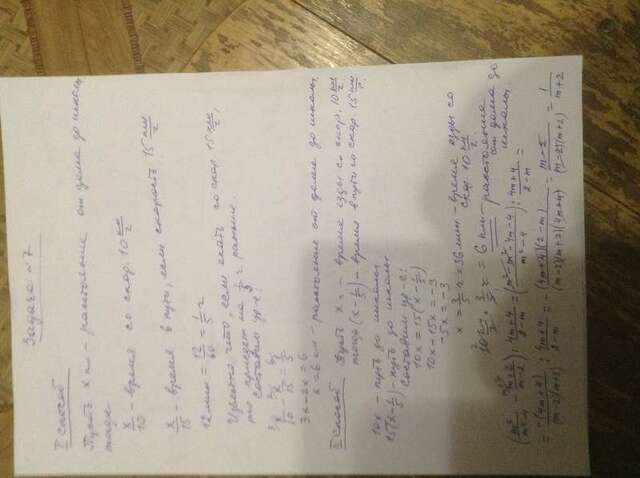 Задача №7
I способ
Пусть x км - расстояние от дома до школы
тогда
x/10 - время со скор. 10 км/ч
x/15 - время в пути, если скорость 15 км/ч
12 мин = 12/60 = 1/5 ч
Известно что, если ехать со скор. 15 км/ч,
то приедет на 1/5 ч раньше.
Составим ур-е:
x/10 - x/15 = 1/5
3x - 2x = 6
x = 6 км - расстояние от дома до школы
II способ Пусть x ч - время езды со скор. 10 км/ч
тогда (x - 1/5) - время в пути со скор. 15 км/ч
10x - путь до школы
15(x - 1/5) - путь до школы
Составим ур-е:
10x = 15(x - 1/5)
10x - 15x = -3
-5x = -3
x = 3/5 ч = 36 мин - время езды со
скор. 10 км/ч
10 км/ч · 3/5 ч = 6 км - расстояние
от дома до
школы
(m²/(m²-4) - (m+2)/(m-2)) : (4m+4)/(2-m) = (m² - m² - 4m - 4)/(m² - 4) : (4m+4)/(2-m) =
= -(4m+4)/((m-2)(m+2)) : (4m+4)/(2-m) = -(4m+4)(2-m)/((m-2)(m+2)(4m+4)) = (m-2)/((m-2)(m+2)) = 1/(m+2)